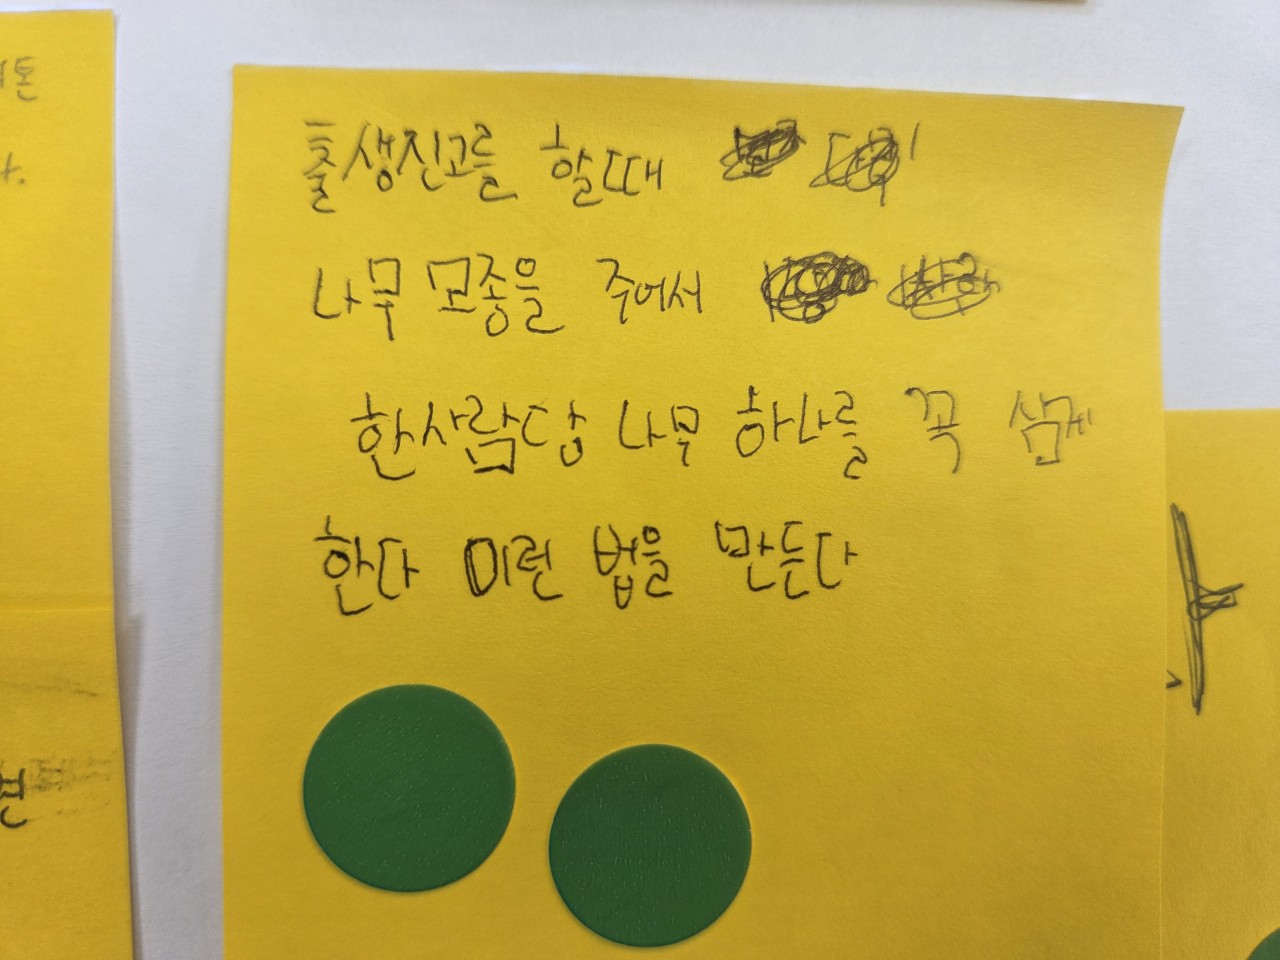 출생진고를 할때
나무 모종을 주어서
한사람당 나무 하나를 꼭 심게
한다 이런 법을 만든다